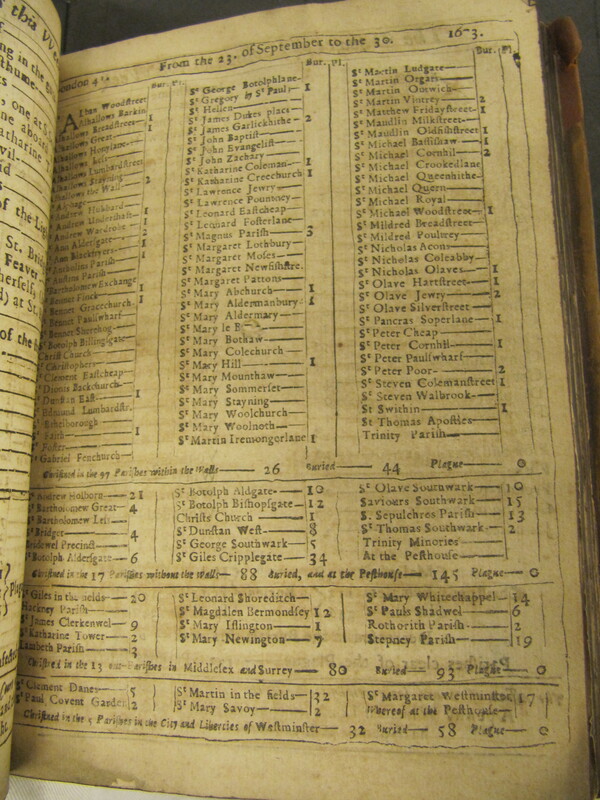 From the 23. of September to the 30. 1673.
London 41.
Bur. Pl.
Alban Woodstreet
Alhallows Barkin
Alhallows Breadstreet 1
Alhallows Great 1
Alhallows Honylane
Alhallows Less
Alhallows Lumbardstreet
Alhallows Stayning
Alhallows the Wall 2
Andrew Hubbard 1
Andrew Undershaft 1
Andrew Wardrobe 2
Ann Aldersgate 1
Ann Blackfryers
Antholins Parish
Austins Parish
Bartholomew Exchange 1
Bennet Finck
Bennet Gracechurch
Bennet Paulswharf
Bennet Sherehog
St Botolph Billingsgate
Christ Church
St Christophers
St Clement Eastcheap
St Dionis Backchurch
St Dunstan East 1
St Edmund Lumbardstr.
St Ethelborough
St Faith 1
St Foster
St Gabriel Fenchurch
Bur. Pl.
St George Botolphlane
St Gregory by St Pauls 1
St Hellen
St James Dukes place
St James Garlickhithe 2
St John Baptist
St John Evangelist
St John Zachary
St Katharine Coleman 1
St Katharine Creechurch 1
St Lawrence Jewry
St Lawrence Pountney
St Leonard Eastcheap
St Leonard Fosterlane
St Magnus Parish 3
St Margaret Lothbury
St Margaret Moses
St Margaret Newfishstre.
St Margaret Pattons
St Mary Abchurch 1
St Mary Aldermanbury 1
St Mary Aldermary
St Mary le
St Mary Bothaw
St Mary Colechurch
St Mary Hill 1
St Mary Mounthaw
St Mary Sommerset
St Mary Stayning
St Mary Woolchurch
St Mary Woolnoth
St Martin Iremongerlane 1
Bur. Pl.
St Martin Ludgate
St Martin Orgars
St Martin Outwich
St Martin Vintrey 2
St Matthew Fridaystreet 1
St Maudlin Milkstreet
St Maudlin Oldfishstreet 1
St Michael Bassishaw 1
St Michael Cornhil 2
St Michael Crookedlane
St Michael Queenhithe
St Michael Quern
St Michael Royal
St Michael Woodstreet 1
St Mildred Breadstreet
St Mildred Poultrey
St Nicholas Acons
St Nicholas Coleabby
St Nicholas Olaves 1
St Olave Hartstreet 1
St Olave Jewry 2
St Olave Silverstreet
St Pancras Soperlane 1
St Peter Cheap
St Peter Cornhil 1
St Peter Paulswharf
St Peter Poor 2
St Steven Colemanstreet 1
St Steven Walbrook
St Swithin 1
St Thomas Apostles
Trinity Parish
Christned in the 97 Parishes within the Walls 26 Buried 44 Plague 0
St Andrew Holborn 21
St Bartholomew Great 4
St Bartholomew Less
St Bridget 4
Bridewel Precinct
St Botolph Aldersgate 6
St Botolph Aldgate 10
St Botolph Bishopsgate 12
Christs Church 1
St Dunstan West 8
St George Southwark 5
St Giles Cripplegate 34
St Olave Southwark 10
Saviours Southwark 15
S. Sepulchres Parish 13
St Thomas Southwark 2
Trinity Minories
At the Pesthouse
Christned in the 17 Parishes without the Walls 88 Buried, and at the Pesthouse 145 Plague 0
St Giles in the fields 20
Hackney Parish
St James Clerkenwel 9
St Katharine Tower 2
Lambeth Parish 3
St Leonard Shoreditch
St Magdalen Bermondsey 12
St Mary Islington 1
St Mary Newington 7
St Mary Whitechappel 14
St Pauls Shadwel 6
Rothorith Parish 2
Stepney Parish 19
Christned in the 13 out-Parishes in Middlesex and Surrey 80 Buried 93 Plague 0
St Clement Danes 5
St Paul Covent Garden 2
St Martin in the fields 32
St Mary Savoy 2
St Margaret Westminster 17
Whereof at the Pesthouse
Christned in the 5 Parishes in the City and Liberties of Westminster 32 Buried 58 Plague 0